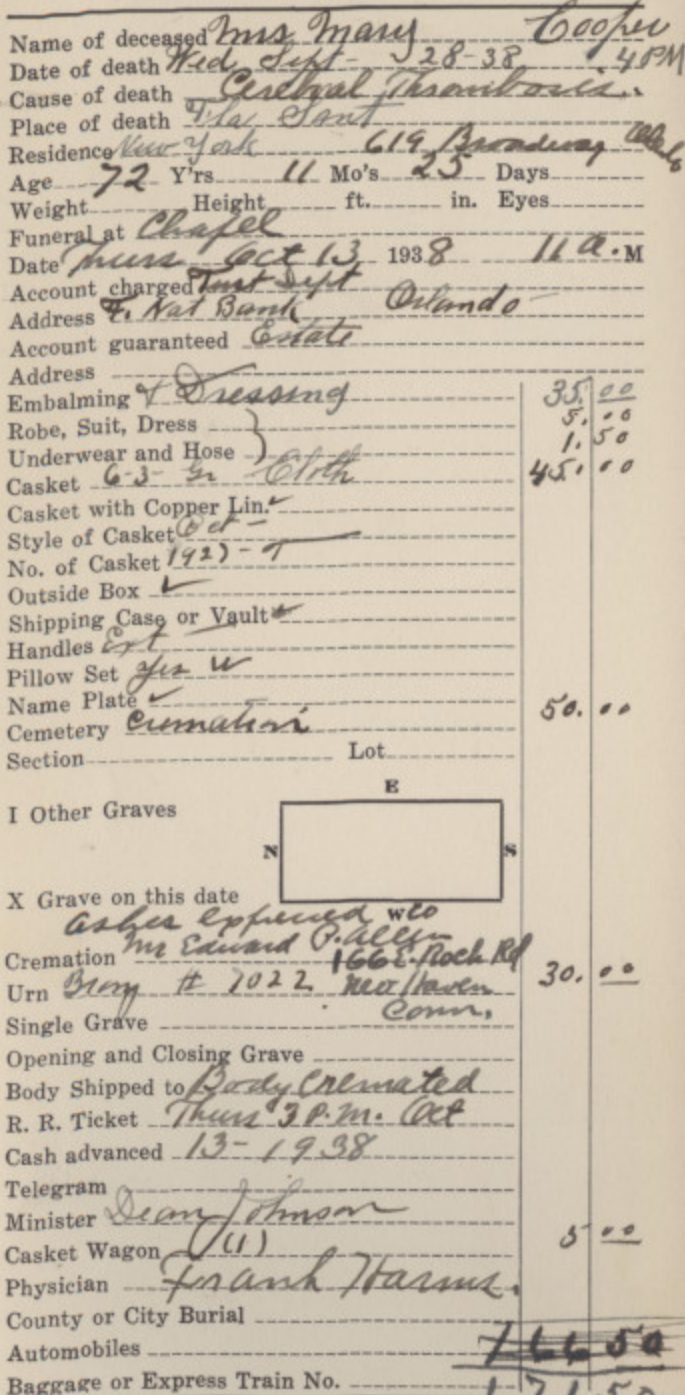 Name of deceased Mrs Mary Cooper
Date of death Wed Sept - 28-38 4 PM
Cause of death Cerebral Thrombosis.
Place of death Fla Sant
Residence New York 619 Broadway
Age 72 Y'rs 11 Mo's 25 Days
Weight Height ft. in. Eyes
Funeral at Chapel
Date Thurs Oct 13 1938 11 a. M
Account charged Trust Dept
Address F. Nat Bank Orlando
Account guaranteed Estate
Address
Embalming & Dressing 35.00
Robe, Suit, Dress 5.00
Underwear and Hose 1.50
Casket 6-3- Gr Cloth 45.00
Casket with Copper Lin.
Style of Casket Oct -
No. of Casket
Outside Box
Shipping Case or Vault
Handles Ext
Pillow Set yes
Name Plate
Cemetery Cremation 50.00
Section Lot
E
I Other Graves
N S
X Grave on this date
ashes expressed
Cremation Mr Edward P. Allen 166 E. Rock Rd
Urn # 7022 New Haven 30.00
Single Grave Conn.
Opening and Closing Grave
Body Shipped to Body Cremated
R. R. Ticket Thurs 3 P.M. Oct
Cash advanced 13-1938
Telegram
Minister Dean Johnson
Casket Wagon (1) 5 00
Physician Frank Harms.
County or City Burial
Automobiles 166 50
Baggage or Express Train No. 171 50